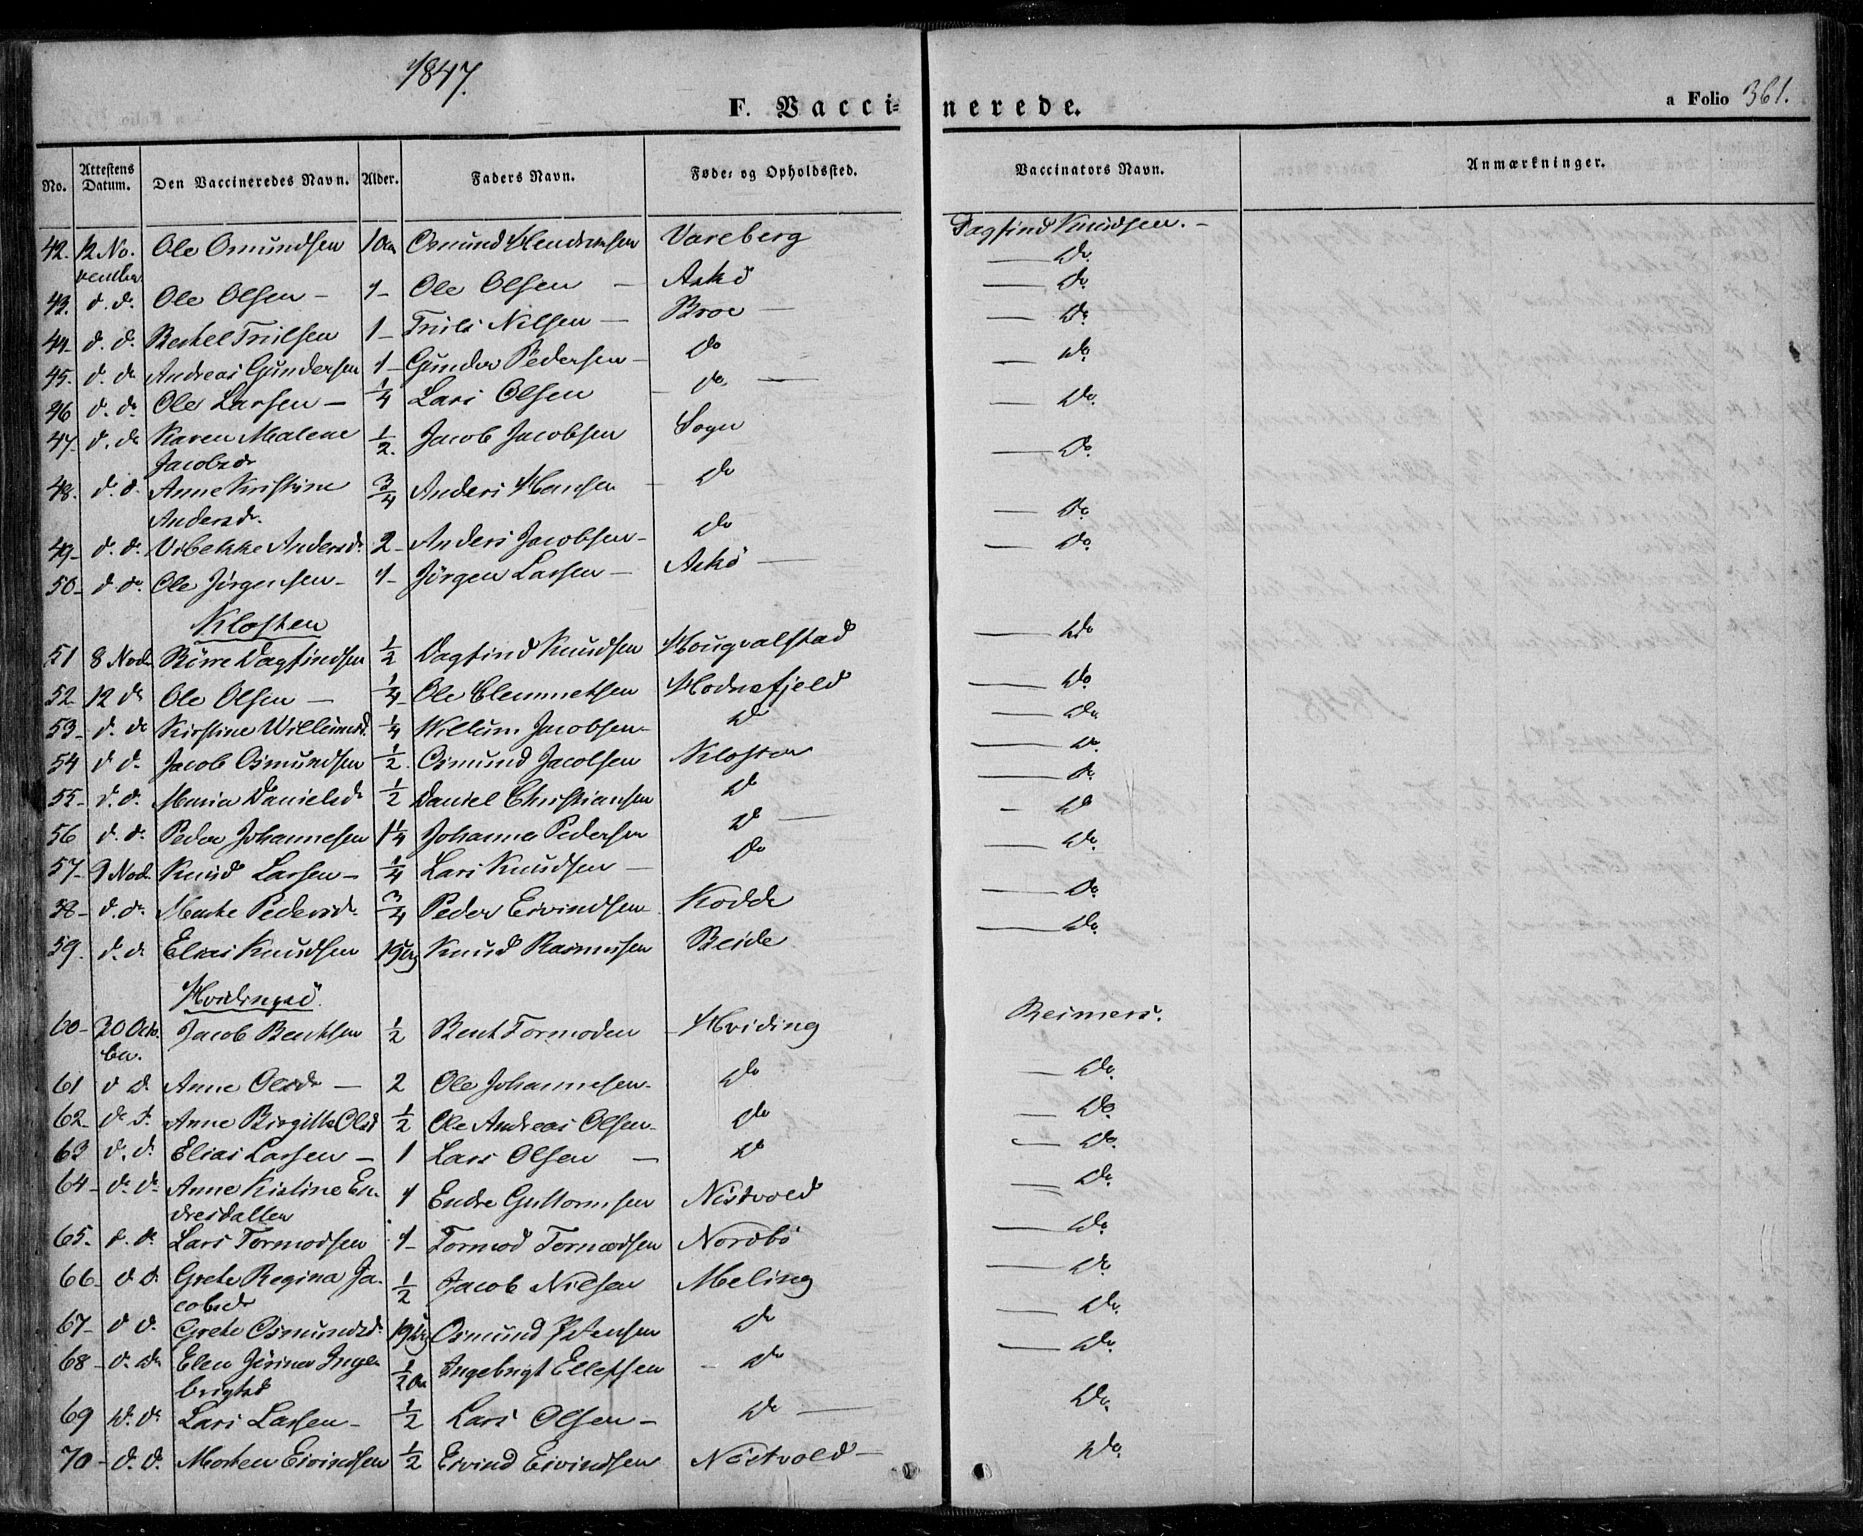 1847.
F. Vaccinerede.
a Folio 361.
No. Attestens Datum. Den Vaccineredes Navn. Alder. Faders Navn. Føde- og Opholdssted. Vaccinators Navn. Anmærkninger.
42. 12 No- Ole Osmundsen 1 Osmund Vareberg Dagfind Knudsen. –
vember Do
43. d. d. Ole Olsen – 1 – Ole Olsen – Askö Do
44 – d. d. Berthel Trulsen 1 – Truls Nilsen – Broe – Do
45. d. do Andreas Gundersen 1 – Gunder Pedersen – do Do
46 d. do Ole Larsen – 1/4 Lars Olsen do – Do
47. d. do Karen Malene 1/2 Jacob Jacobsen Sogn Do
Jacobsdr
48. d. d. Anne Kristine 3/4 Anders Hansen do Do
Andersdr.
49 – d. d. Vibekke Andersd. 2 – Anders Jacobsen – do Do
50 – d do Ole Jörgensen – 1 – Jörgen Larsen – Askö –
Klosten
51 8 Nov Börre Dagfindsen 1/2 Dagfind Knudsen Hougvalstad Do
52 – 12 do Ole Olsen – 1/4 Ole Clemmetsen Hodnefjeld Do
53 – d. do Kirstine Willumsd. 1/4 Willum Jacobsen – do Do
54 d d. Jacob Osmundsen 1/2 Osmund Jacobsen Kloster Do
55 – d. d. Maria Danielsd 1/2 Daniel Christiansen do Do
56 d. d. Peder Johannesen 1 1/4 Johannes Pedersen do – Do
57 – 9 Nov. Knud Larsen – 1/4 Lars Knudsen – do Do
58 – d. d. Marte Pedersd. 3/4 Peder Eivindsen Kodde Do
59. d. d Elias Knudsen Knud Rasmusen Reide Do
Hvidingsö.
60 – 20 Octo- Jacob Bentsen 1/2 Bent Tormodsen – Hviding Reimers.
ber.
61 d d. Anne Olsdr – 2 Ole Johannesen – do Do
62 – d. d. Anne Birgitte Olsd 1/2 Ole Andreas Olsen – do Do
63 d. d. Elias Larsen – 1 Lars Olsen – do Do
64 – d. d. Anne Kistine En- 1 Endre Guttormsen Nöstvold Do
dresdatter
65 – d. d. Lars Tormodsen 1 – Tormod Tormodsen Nordbö Do
66 – d d. Grete Regina Ja- 1/2 Jacob Nilsen Meling Do
cobsdr
67 – d d. Grete Osmundsd. Osmund do Do
68 – d. do Elen Jörine Inge- 1/2 Ingebrigt Ellefsen – do Do
brigtsd
69 d. d. Lars Larsen – 1/2 Lars Olsen – do – Do
70 – d. d. Morten Eivindsen 1/2 Eivind Eivindsen Nöstvold – Do